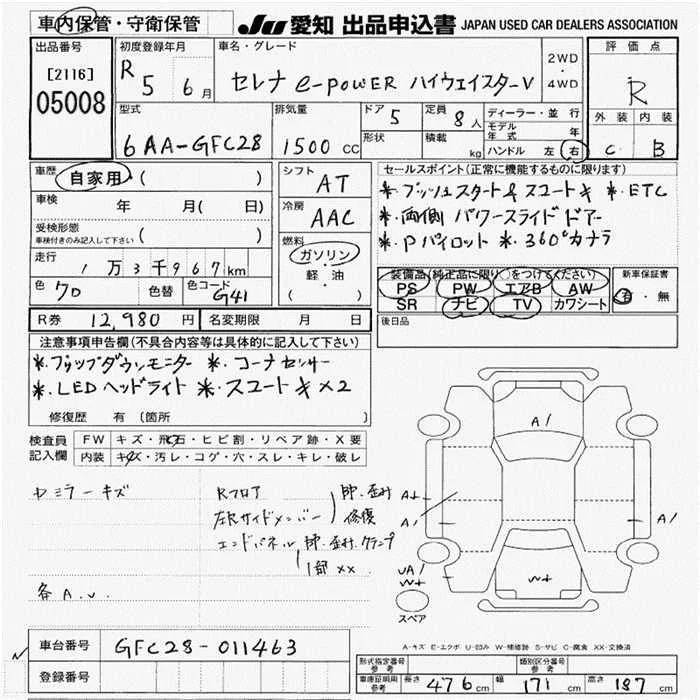 車内保管・守衛保管
JU 愛知 出品申込書 JAPAN USED CAR DEALERS ASSOCIATION
出品番号
[2116]
05008
初度登録年月
R 5 6月
車名・グレード
セレナ e-POWER ハイウェイスターV
2WD
・
4WD
評価点
R
外装 内装
C B
型式
6AA-GFC28
排気量
1500 CC
ドア 5
形状
定員 8人
積載 kg
ディーラー・並行
モデル年式 年
ハンドル 左 右
車歴 自家用 ( )
車検 年 月( 日)
受検形態
車検付きのみ記入して下さい ( )
走行 1万3千967km
色 クロ 色替 色コード G41
シフト AT
冷房 AAC
燃料
ガソリン
・
軽・油
( )
セールスポイント(正常に機能するものに限ります)
*.プッシュスタート& スマートキ *.ETC
*.両側 パワースライドドアー
*.Pパイロット *.360°カメラ
装備品(純正品に限り○をつけてください)
PS PW エアB AW
SR ナビ TV カワシート
新車保証書
有・無
R券 12,980円
名変期限 月 日
後日品
注意事項申告欄(不具合内容等は具体的に記入して下さい)
*.フリップダウンモニター *.コーナセンサー
*.LEDヘッドライト *.スマートキ×2
修復歴 有 (箇所 )
検査員
記入欄
FW キズ・飛石・ヒビ割・リペア跡・X要
内装 キズ・汚レ・コゲ・穴・スレ・キレ・破レ
ミラーキズ
Rフロア
左Rサイドメンバー
凹・歪み
修復
エンドパネル 凹・歪み.クランプ
1部 XX
各A.U.
A1
A1
A1
UA1
W+
W+
スペア
A-キズ E-エクボ U-凹み W-補修跡 S-サビ C-腐食 XX-交換済
車台番号 GFC28-011463
登録番号
型式指定番号
参考
類別区分番号
参考
車庫証明用
参考
長さ 476cm 幅 171cm 高さ 187cm